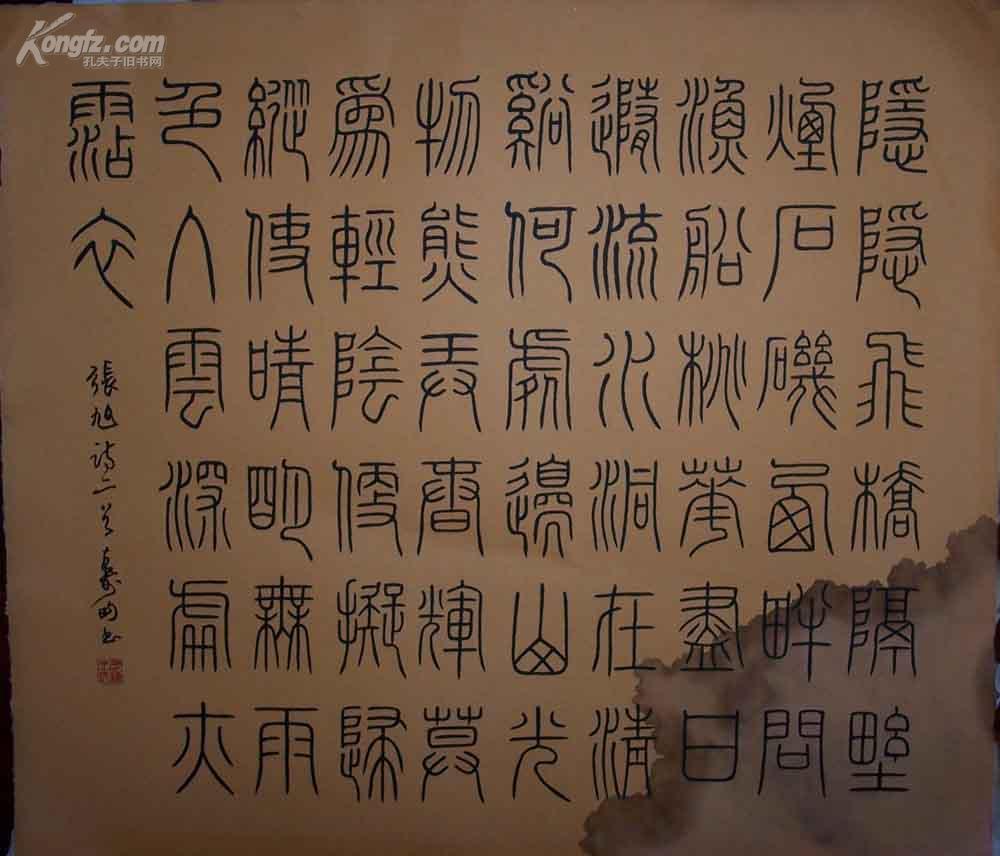 隱隱飛橋隔野
煙石磯西畔問
漁船桃花盡日
隨流水洞在清
谿何處邊山光
物態弄春輝莫
為輕陰便擬歸
縱使晴明無雨
色入雲深處亦
霑衣
張旭詩二首 書
Kongfz.com
孔夫子旧书网